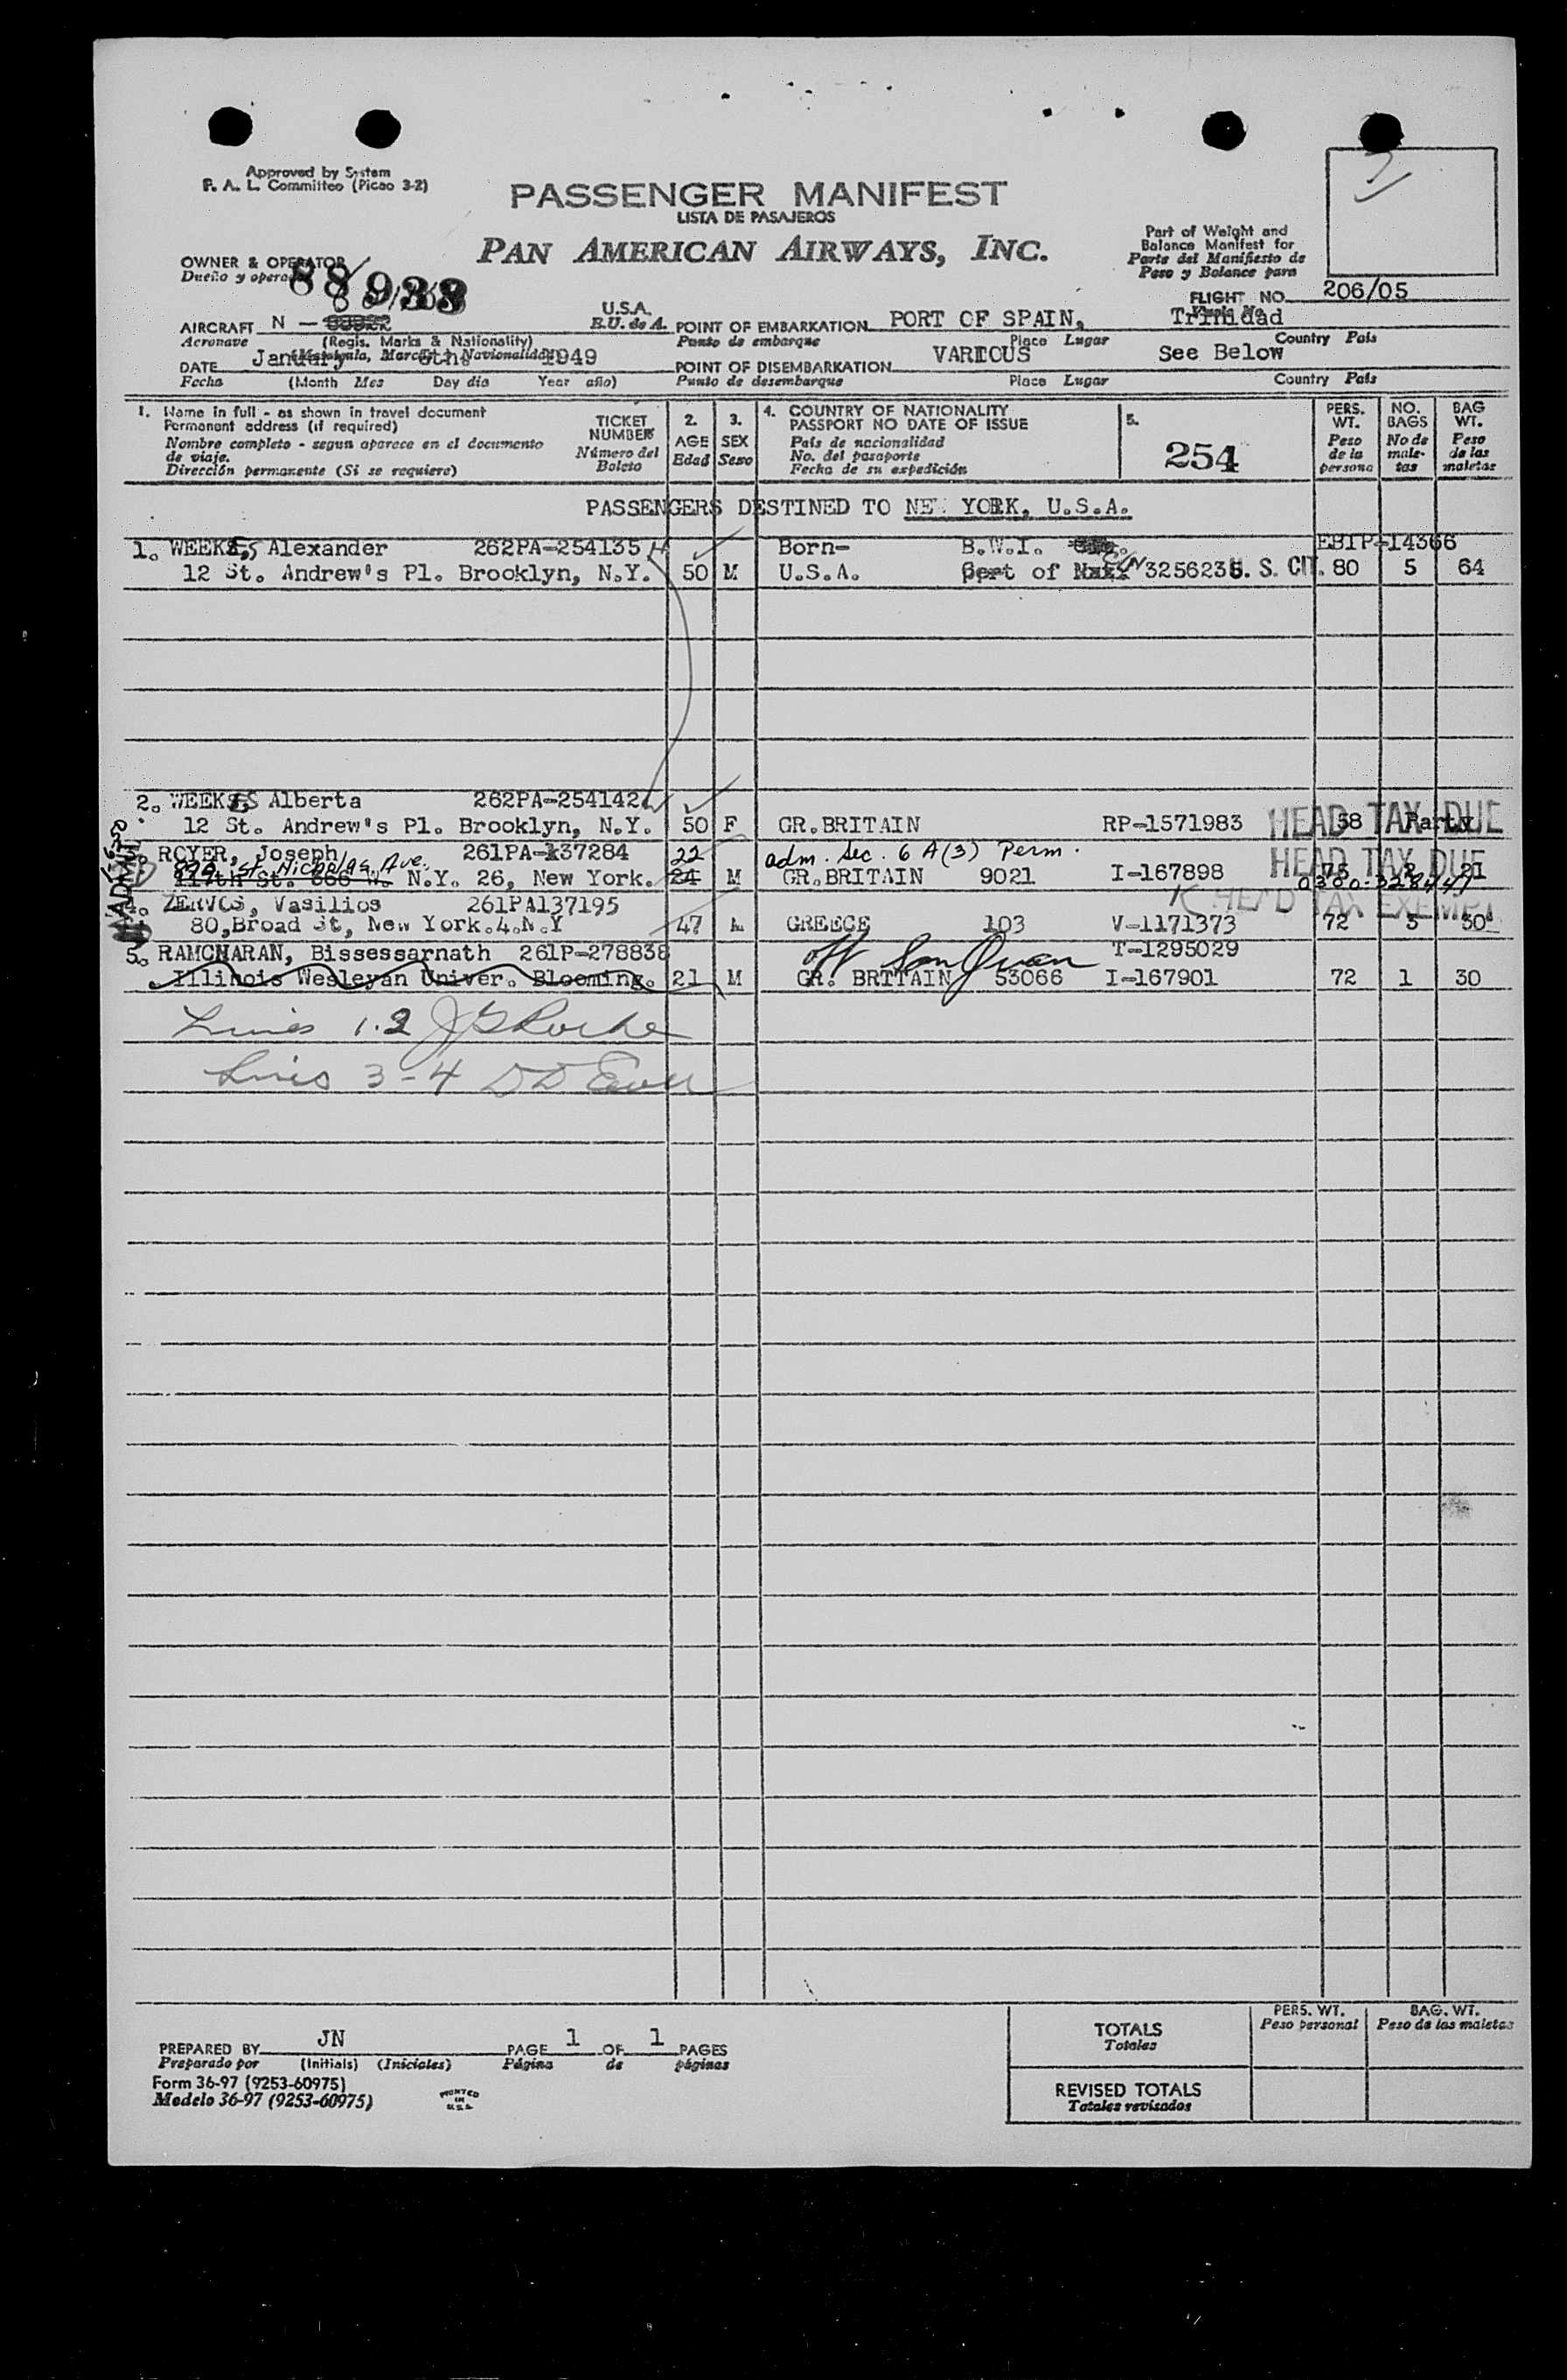 Approved by System
P. A. L. Committee (Picao 3-2)
PASSENGER MANIFEST
LISTA DE PASAJEROS
PAN AMERICAN AIRWAYS, INC.
Part of Weight and
Balance Manifest for
Parte del Manifiesto de
Peso y Balance para
OWNER & OPERATOR
Dueño y operador
88933
FLIGHT NO. 206/05
AIRCRAFT N - U.S.A.
Aeronave (Regis. Marks & Nationality) E.U. de A.
POINT OF EMBARKATION PORT OF SPAIN, Trinidad
Punto de embarque Place Lugar Country País
DATE January 1949
Fecha (Month Mes Day dia Year año)
POINT OF DISEMBARKATION VARIOUS See Below
Punto de desembarque Place Lugar Country País
1. Name in full - as shown in travel document
Permanent address (if required)
Nombre completo - segun aparece en el documento
de viaje.
Dirección permanente (Si se requiere)
TICKET
NUMBER
Número del
Boleto
2.
AGE
Edad
3.
SEX
Sexo
4. COUNTRY OF NATIONALITY
PASSPORT NO DATE OF ISSUE
País de nacionalidad
No. del pasaporte
Fecha de su expedición
5.
254
PERS.
WT.
Peso
de la
persona
NO.
BAGS
No de
male-
tas
BAG
WT.
Peso
de las
maletas
PASSENGERS DESTINED TO NEW YORK, U.S.A.
1. WEEKES, Alexander 262PA-254135 Born- B.W.I. EBTP-14366
12 St. Andrew's Pl. Brooklyn, N.Y. 50 M U.S.A. Cert of 3256235 U. S. CIT. 80 5 64
2. WEEKES Alberta 262PA-254142 HEAD TAX DUE
12 St. Andrew's Pl. Brooklyn, N.Y. 50 F GR.BRITAIN RP-1571983 58 Party
3. ROYER, Joseph 261PA-137284 22 adm. Sec. 6 A(3) Perm. HEAD TAX DUE
St. Nicholas Ave.
117th St. 366 W. N.Y. 26, New York. 24 M GR.BRITAIN 9021 I-167898 2 21
0300-328447
4. ZERVOS, Vasilios 261PA137195 HEAD TAX EXEMPT
80,Broad St, New York.4.N.Y 47 M GREECE 103 V-1171373 72 3 30
5. RAMCHARAN, Bissessarnath 261P-278838 off San Juan T-1295029
Illinois Wesleyan Univer. Blooming. 21 M GR. BRITAIN 53066 I-167901 72 1 30
Lines 1.2
Lines 3-4
PREPARED BY JN PAGE 1 OF 1 PAGES
Preparado por (Initials) (Iniciales) Página de páginas
Form 36-97 (9253-60975)
Modelo 36-97 (9253-60975)
PRINTED
IN
U.S.A.
PERS. WT.
Peso personal
BAG. WT.
Peso de las maletas
TOTALS
Totales
REVISED TOTALS
Totales revisados